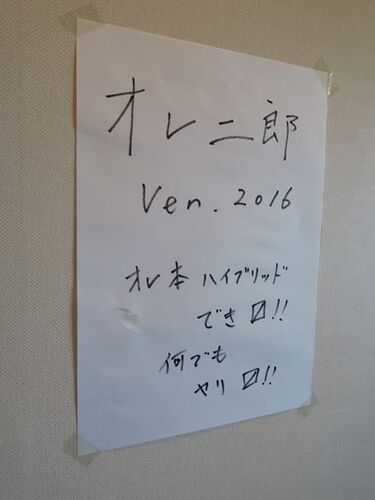 オレ二郎
Ver. 2016
オレ本ハイブリッド
でき〼!!
何でも
ヤリ〼!!